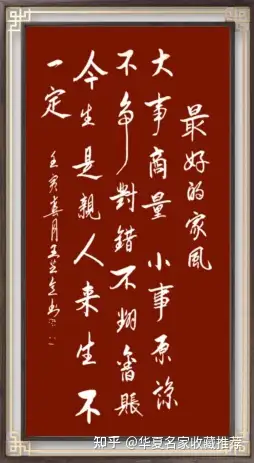 最好的家風
大事商量 小事原諒
不争對錯不翻舊賬
今生是親人来生不
一定
壬寅春月
知乎 @华夏名家收藏推荐